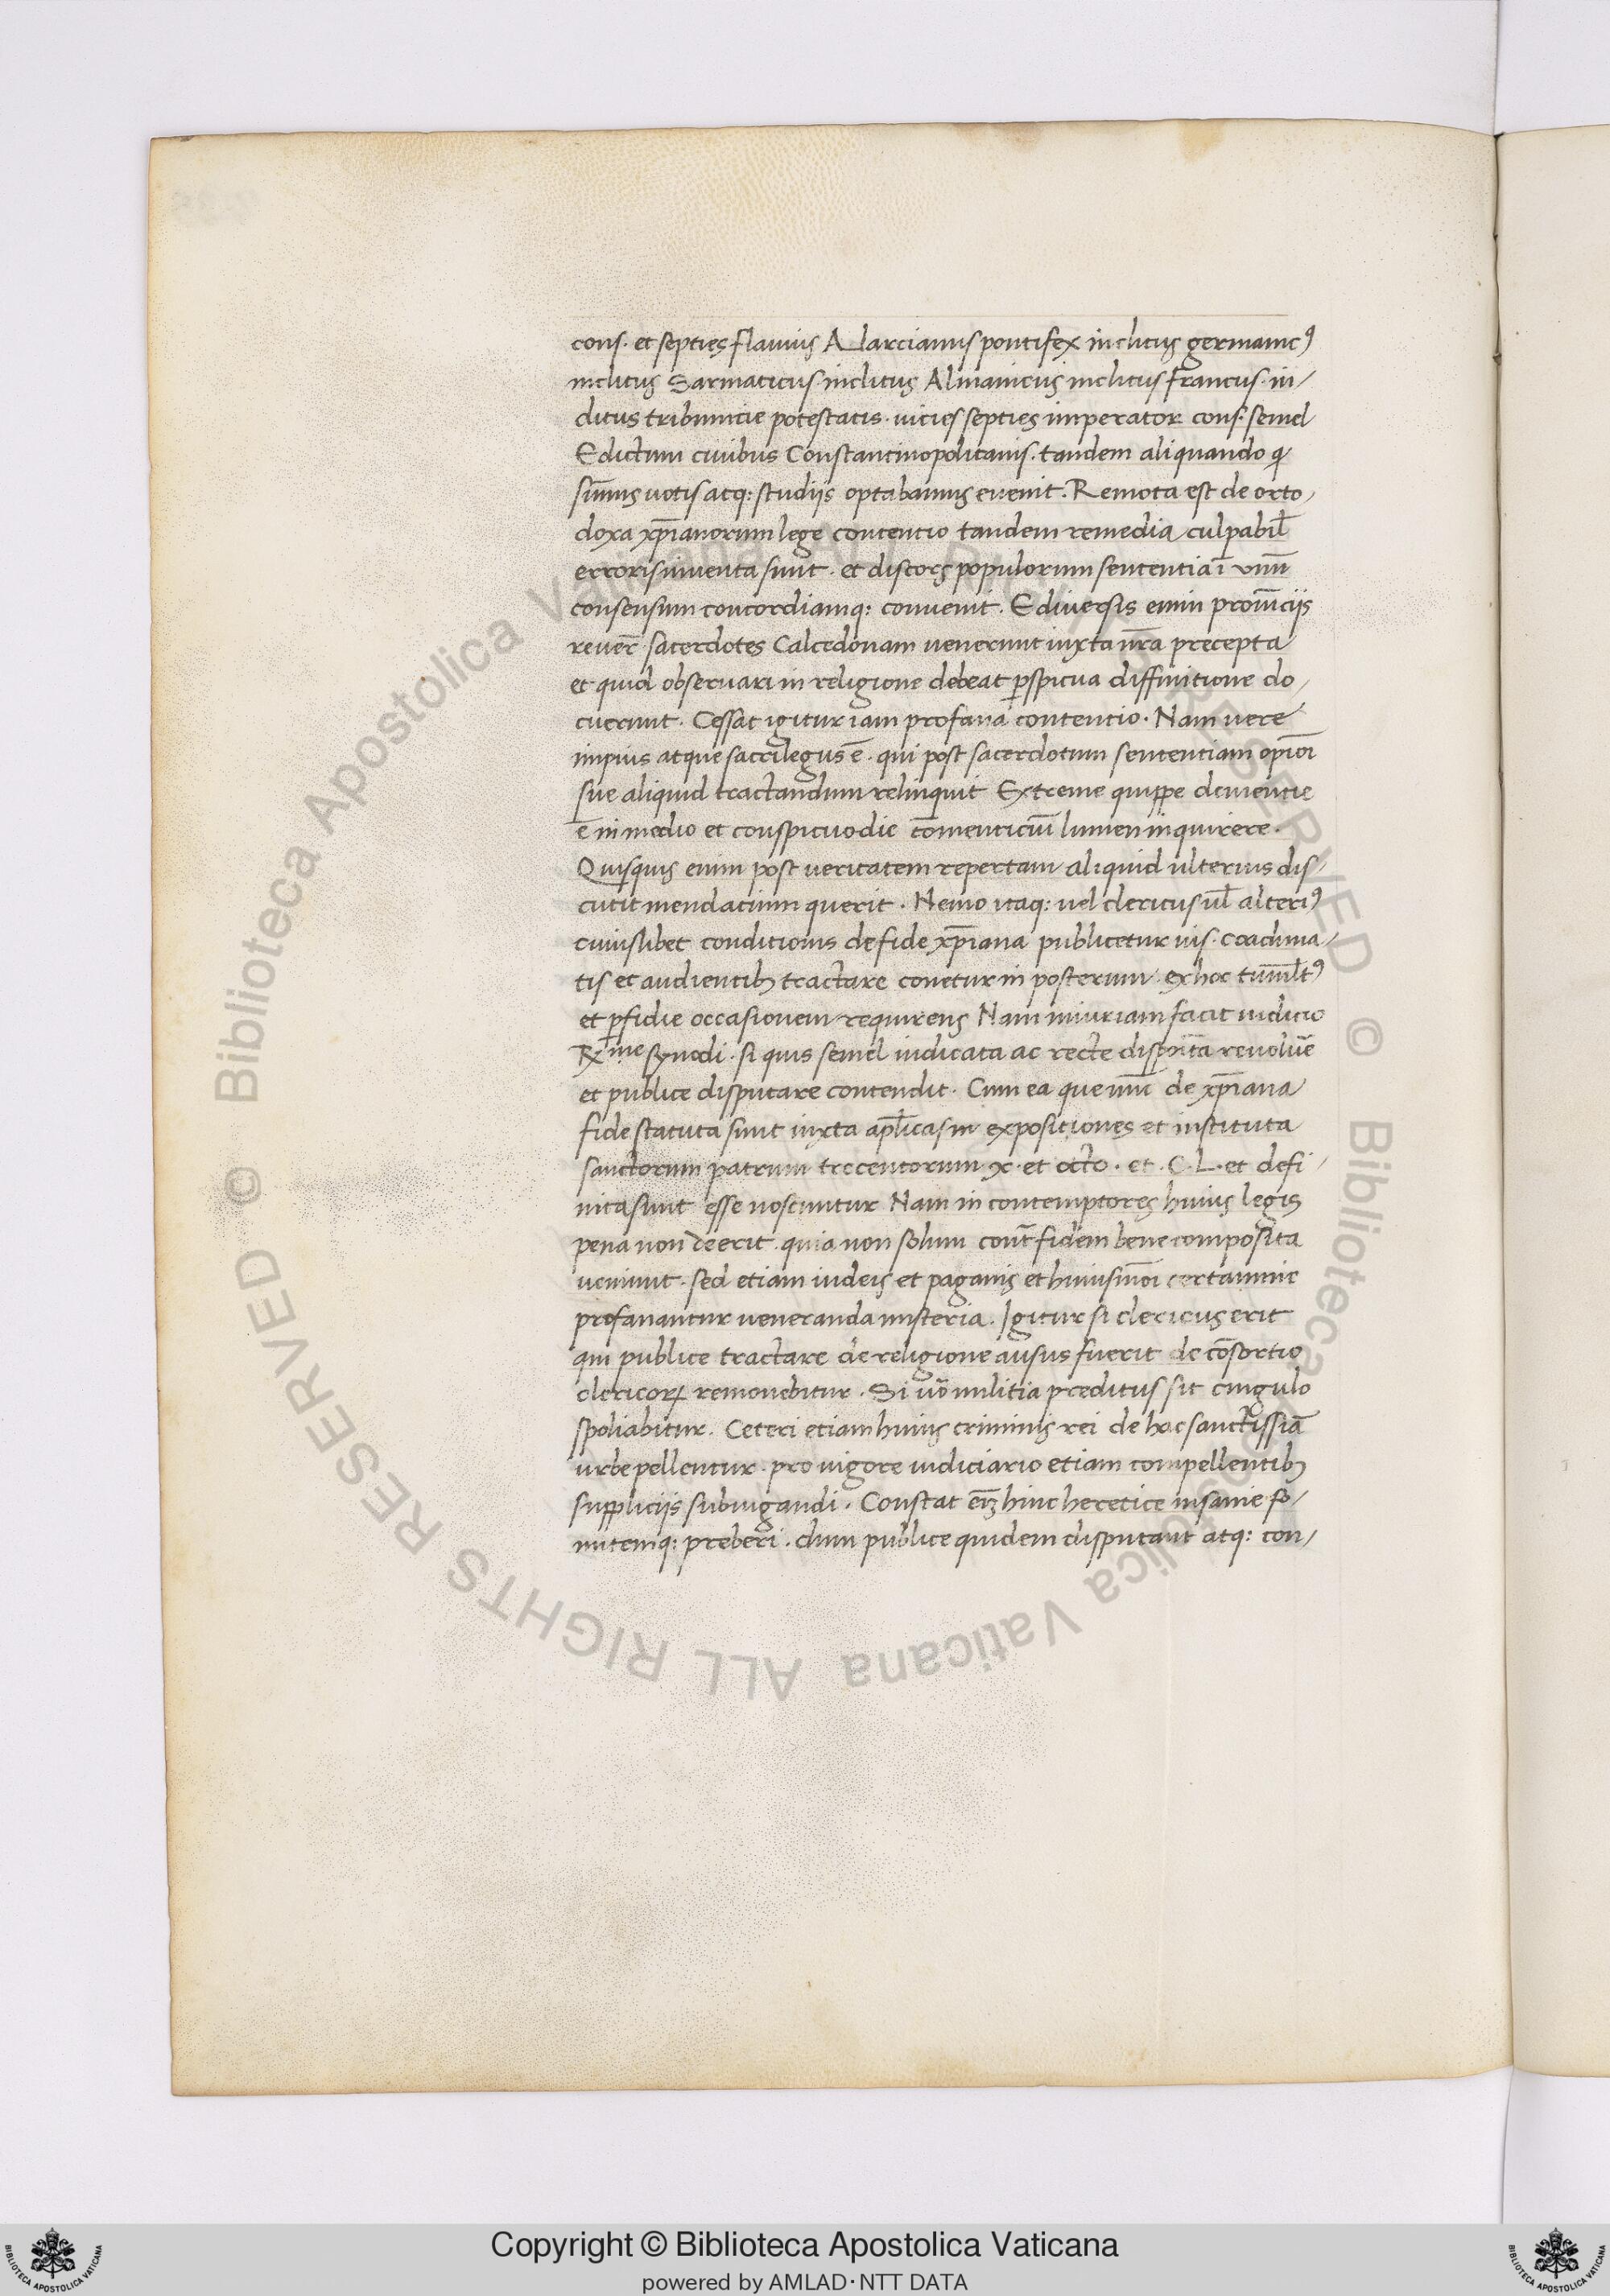 cons. et septies flauius Marcianus pontifex inclitus germanicꝰ
inclitus Sarmaticus inclitus Almanicus inclitus francus. in/
clitus tribunicie potestatis. uicies septies imperator cons. semel
Edictum ciuibus Constantinopolitanis. tandem aliquando q
sum̄is uotis atq: studiis optabamus euenit. Remota est de orto/
doxa xp̄ianorum lege contentio tandem remedia culpabil̄
erroris inuenta sunt. et discors populorum sententia ī vnū
consensum concordiamq: conuenit. E diuersis enim prouīciis
reuer̄ sacerdotes Calcedonam venerunt iuxta nr̄a precepta
et quid obseruari in religione debeat ꝑspicua diffinitione do/
cuerunt. Cessat igitur iam profana contentio. Nam vere
impius atque sacrilegus ē. qui post sacerdotum sententiam opiōi
sue aliquid tractandum relinquit Extreme quippe dementie
ē in medio et conspicuo die com̄enticiū lumen inquirere.
Quisquis enim post ueritatem repertam aliquid ulterius dis/
cutit mendacium querit. Nemo itaq: uel clericus ul̄ alteriꝰ
cuiuslibet conditionis de fide xp̄iana publicetur uis. coaduna/
tis et audientibꝫ tractare conetur in posterum. ex hoc tumul̄tꝰ
et ꝑfidie occasionem requirens Nam iniuriam facit iudicio
R̥me synodi. si quis semel iudicata ac recte disposita reuoluē
et publice disputare contendit. Cum ea que nūc de xp̄iana
fide statuta sunt iuxta apl̄icas in expositiones et instituta
sanctorum patrum trecentorum x. et octo. et. C. L. et defi/
nita sunt esse noscuntur Nam in contemptores huius legis
pena non deerit. quia non solum cont̄ fidem bene composita
ueniunt. sed etiam iudeis et paganis et huiusm̄oi certamine
profanantur ueneranda misteria. Igitur si clericus erit
qui publice tractare de religione ausus fuerit de cōsortio
clericoꝝ remouebitur. Si uō militia preditus sit cingulo
spoliabitur. Ceteri etiam huius criminis rei de hac sanctissīa
urbe pellentur. pro uigore iudiciario etiam compellentibꝫ
suppliciis subiugandi. Constat eī hinc heretice insanie fo/
mitemq: preberi. dum publice quidem disputant atq: con/
Copyright © Biblioteca Apostolica Vaticana
powered by AMLAD·NTT DATA
© Biblioteca Apostolica Vaticana ALL RIGHTS RESERVED
© Biblioteca Apostolica Vaticana ALL RIGHTS RESERVED